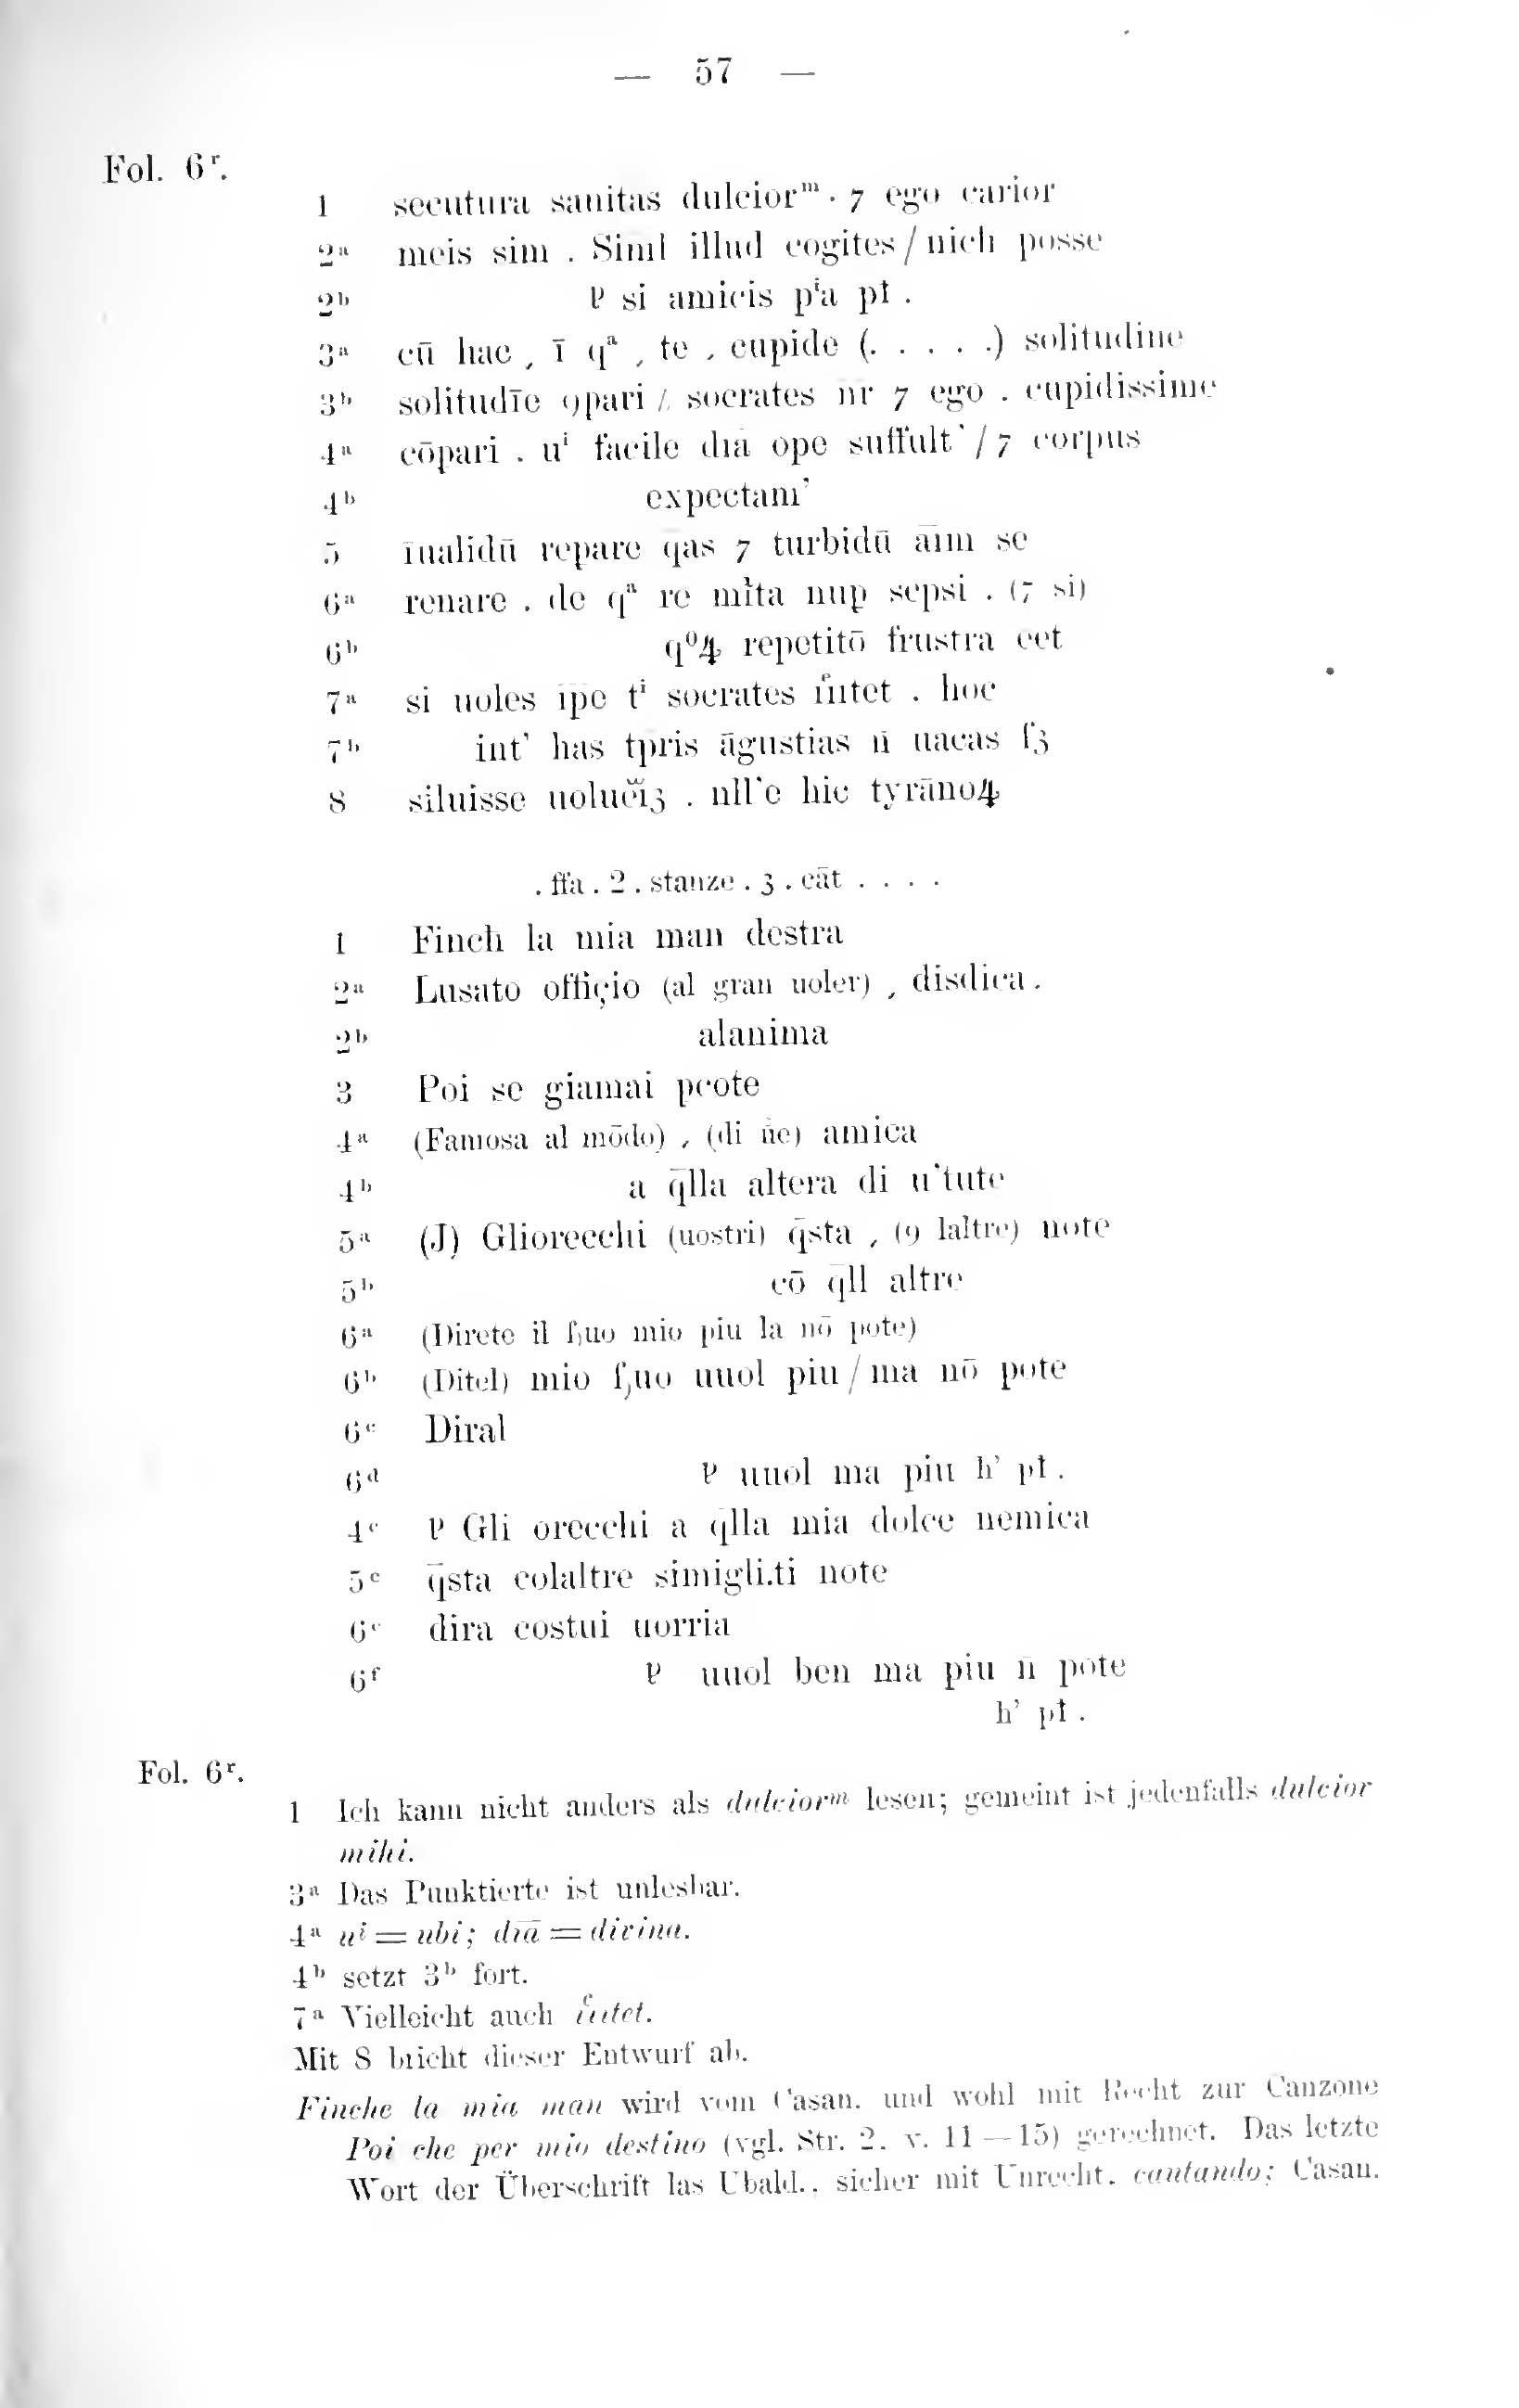 — 57 —
Fol. 6ʳ.
1 secutura sanitas dulciorᵐ· 7 ego carior
2ᵃ meis sim . Siml illud cogites / nich posse
2ᵇ si amicis pⁱa pł .
3ᵃ cū hac , ī qᵃ , te , cupide (. . . . .) solitudine
3ᵇ solitudīe ꝯpari /. socrates nr̄ 7 ego . cupidissime
4ᵃ cōpari . uⁱ facile dıā ope suffult' / 7 corpus
4ᵇ expectam'
5 īualidū repare q̄as 7 turbidū āīm se
6ᵃ renare . de qᵃ re mlta nup sepsi . (7 si)
6ᵇ qº4 repetitō frustra eet
7ᵃ si uoles īpe tⁱ socrates îĩtet . hoc
7ᵇ int' has tpris āgustias n̄ uacas ſʒ
8 siluisse . nll'e hic tyrāno4
. ffa . 2 . stanze . 3 . cāt . . . .
1 Finch la mia man destra
2ᵃ Lusato officio (al gran uoler) , disdica .
2ᵇ alanima
3 Poi se giamai pcote
4ᵃ (Famosa al mōdo) , (di n̄e) amica
4ᵇ a q̄lla altera di u'tute
5ᵃ (J) Gliorecchi (uostri) q̄sta , (ꝯ laltre) note
5ᵇ cō q̄ll altre
6ᵃ (Direte il ſuo mio piu la nō pote)
6ᵇ (Ditel) mio ſuo uuol piu / ma nō pote
6ᶜ Diral
6ᵈ uuol ma piu h' pł .
4ᶜ Gli orecchi a q̄lla mia dolce nemica
5ᶜ q̄sta colaltre simigli.ti note
6ᵉ dira costui uorria
6ᶠ uuol ben ma piu n̄ pote
h' pł .
Fol. 6ʳ.
1 Ich kann nicht anders als dulciorᵐ lesen; gemeint ist jedenfalls dulcior
mihi.
3ᵃ Das Punktierte ist unlesbar.
4ᵃ uⁱ = ubi; dıā = divina.
4ᵇ setzt 3ᵇ fort.
7ᵃ Vielleicht auch îutet.
Mit 8 bricht dieser Entwurf ab.
Finche la mia man wird vom Casan. und wohl mit Recht zur Canzone
Poi che per mio destino (vgl. Str. 2. v. 11—15) gerechnet. Das letzte
Wort der Überschrift las Ubald., sicher mit Unrecht, cantando; Casan.